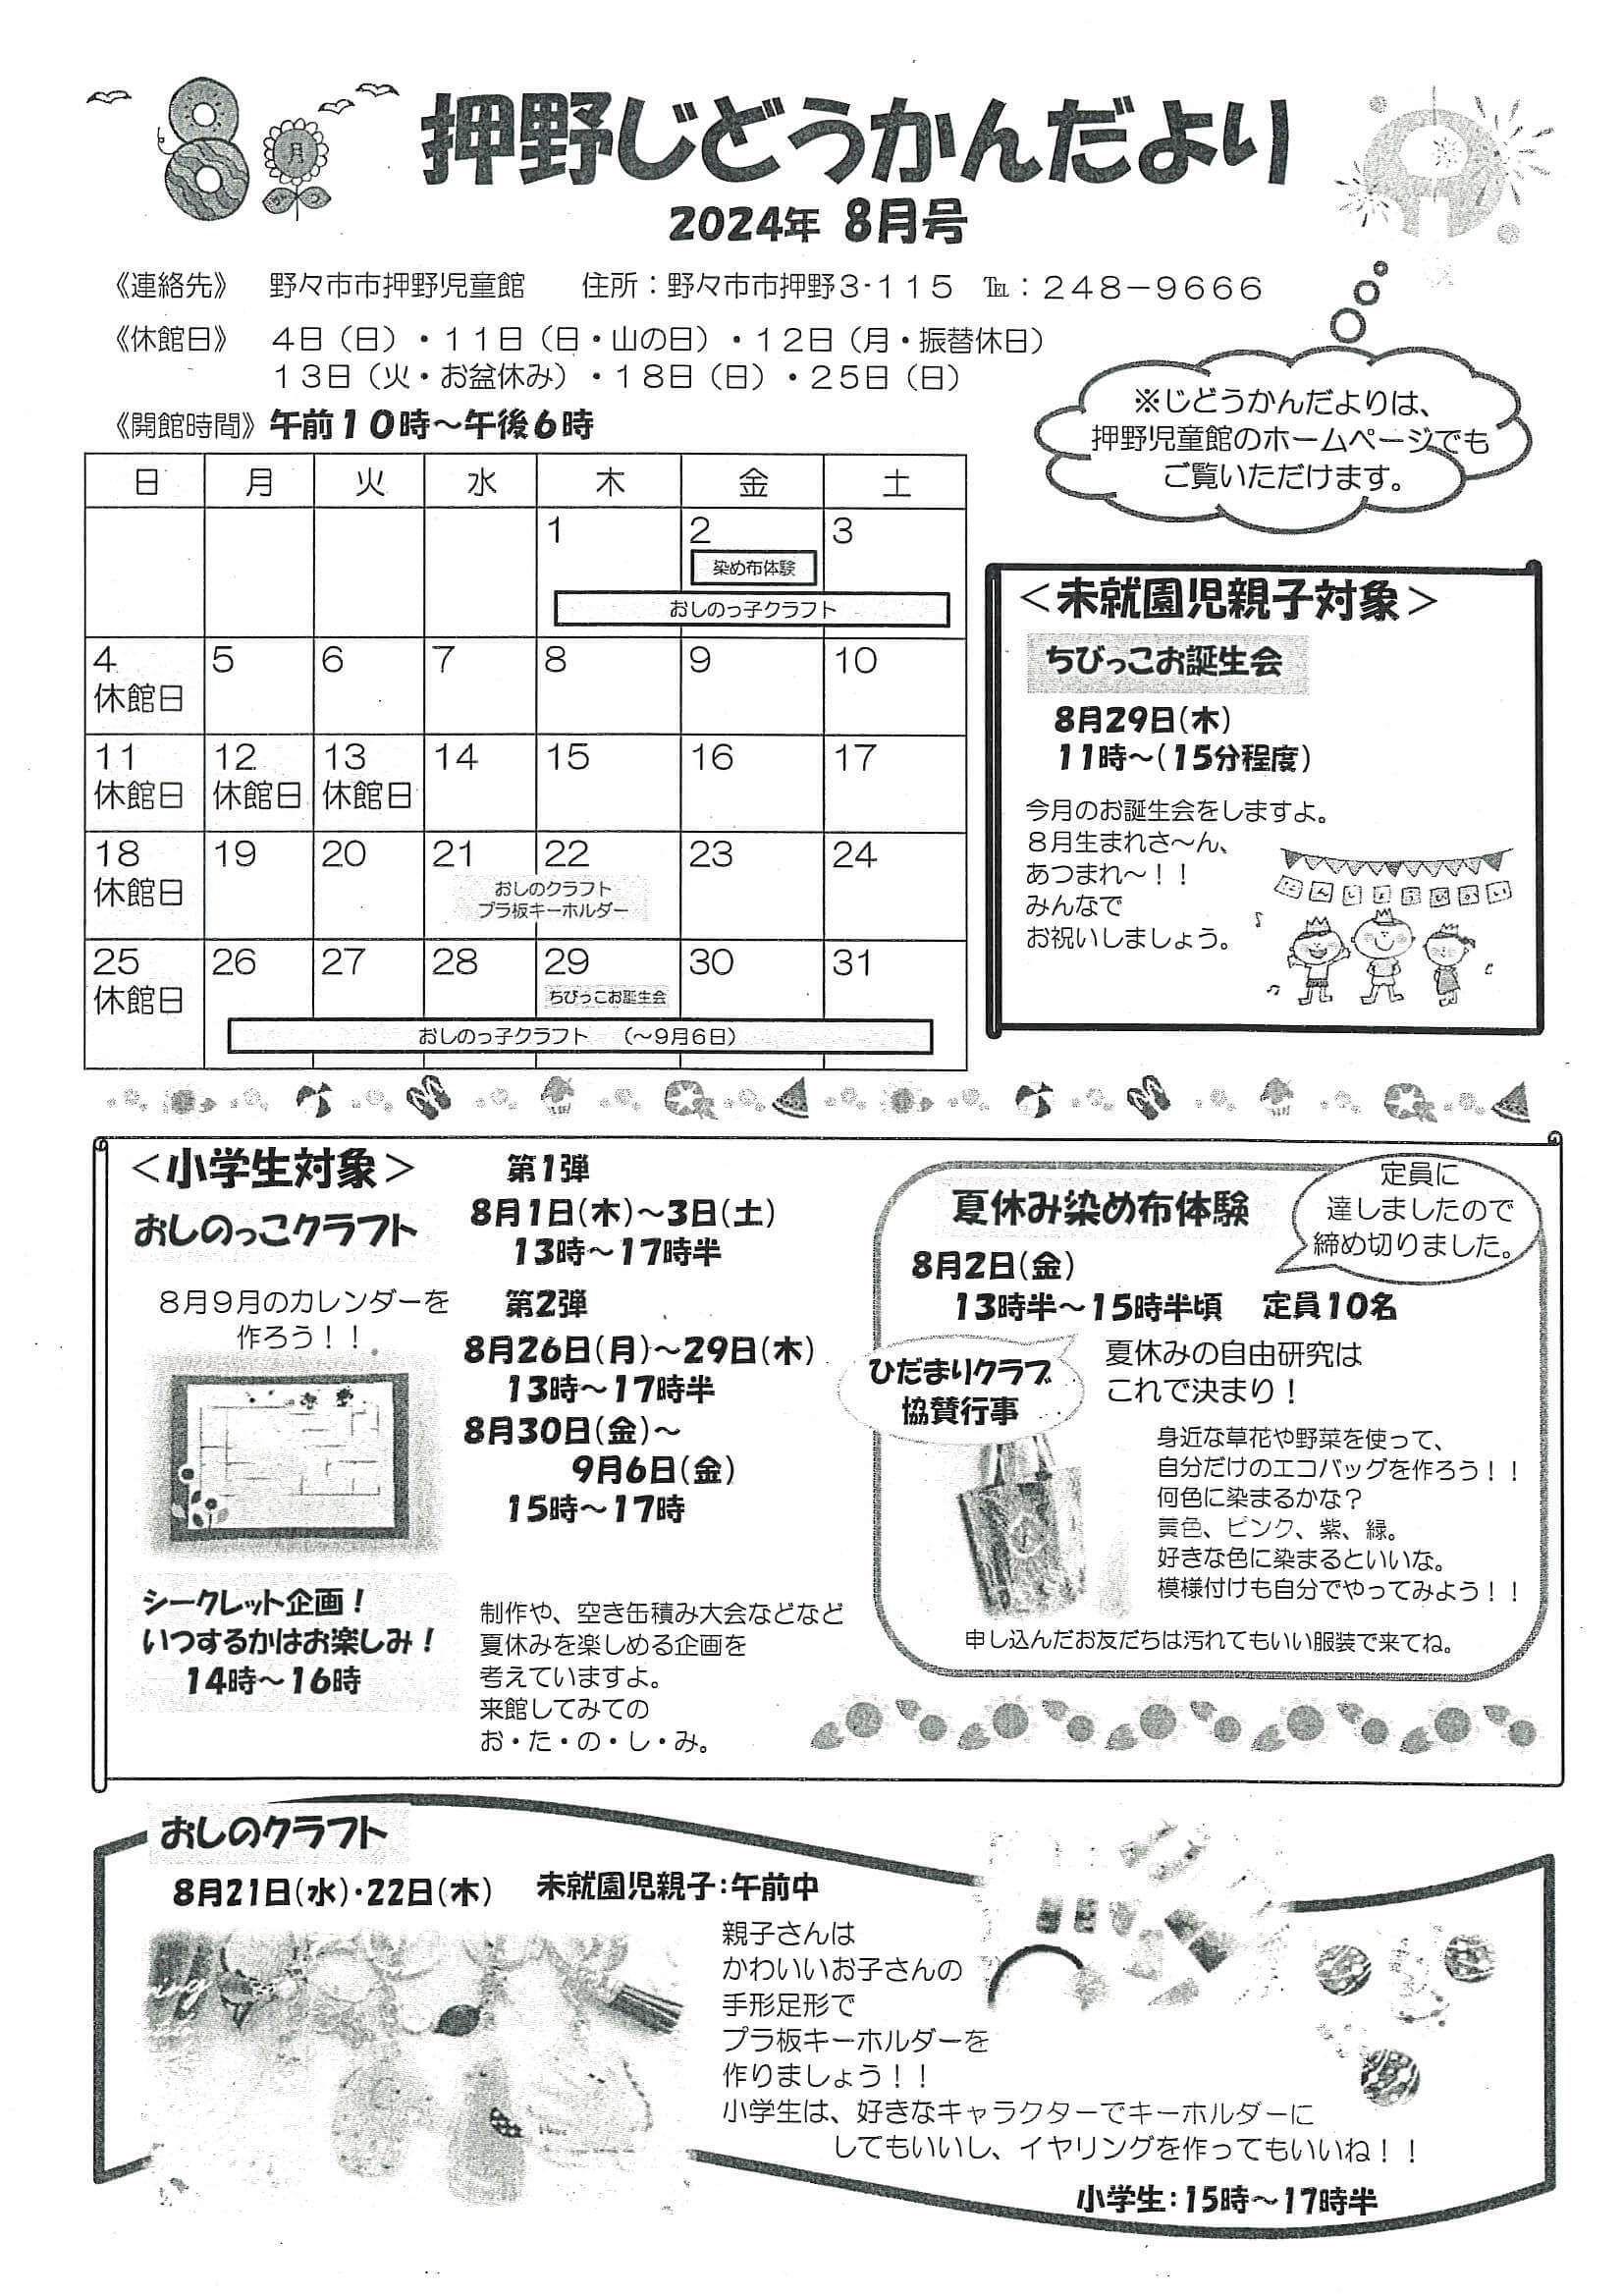 8月
押野じどうかんだより
2024年 8月号
《連絡先》 野々市市押野児童館 住所：野々市市押野３-１１５ ℡：２４８－９６６６
《休館日》 ４日（日）・１１日（日・山の日）・１２日（月・振替休日）
１３日（火・お盆休み）・１８日（日）・２５日（日）
《開館時間》午前１０時～午後６時
※じどうかんだよりは、
押野児童館のホームページでも
ご覧いただけます。
日 月 火 水 木 金 土
1 2 3
染め布体験
おしのっ子クラフト
4 5 6 7 8 9 10
休館日
11 12 13 14 15 16 17
休館日 休館日 休館日
18 19 20 21 22 23 24
休館日
おしのクラフト
プラ板キーホルダー
25 26 27 28 29 30 31
休館日 ちびっこお誕生会
おしのっ子クラフト （～9月6日）
＜未就園児親子対象＞
ちびっこお誕生会
8月29日(木)
11時～(15分程度)
今月のお誕生会をしますよ。
８月生まれさ～ん、
あつまれ～！！
みんなで
お祝いしましょう。
＜小学生対象＞
おしのっこクラフト
８月９月のカレンダーを
作ろう！！
第1弾
8月1日(木)～3日(土)
13時～17時半
第2弾
8月26日(月)～29日(木)
13時～17時半
8月30日(金)～
9月6日(金)
15時～17時
シークレット企画！
いつするかはお楽しみ！
14時～16時
制作や、空き缶積み大会などなど
夏休みを楽しめる企画を
考えていますよ。
来館してみての
お・た・の・し・み。
夏休み染め布体験
定員に
達しましたので
締め切りました。
8月2日(金)
13時半～15時半頃 定員10名
ひだまりクラブ
協賛行事
夏休みの自由研究は
これで決まり！
身近な草花や野菜を使って、
自分だけのエコバッグを作ろう！！
何色に染まるかな？
黄色、ピンク、紫、緑。
好きな色に染まるといいな。
模様付けも自分でやってみよう！！
申し込んだお友だちは汚れてもいい服装で来てね。
おしのクラフト
8月21日(水)・22日(木) 未就園児親子：午前中
親子さんは
かわいいお子さんの
手形足形で
プラ板キーホルダーを
作りましょう！！
小学生は、好きなキャラクターでキーホルダーに
してもいいし、イヤリングを作ってもいいね！！
小学生：15時～17時半